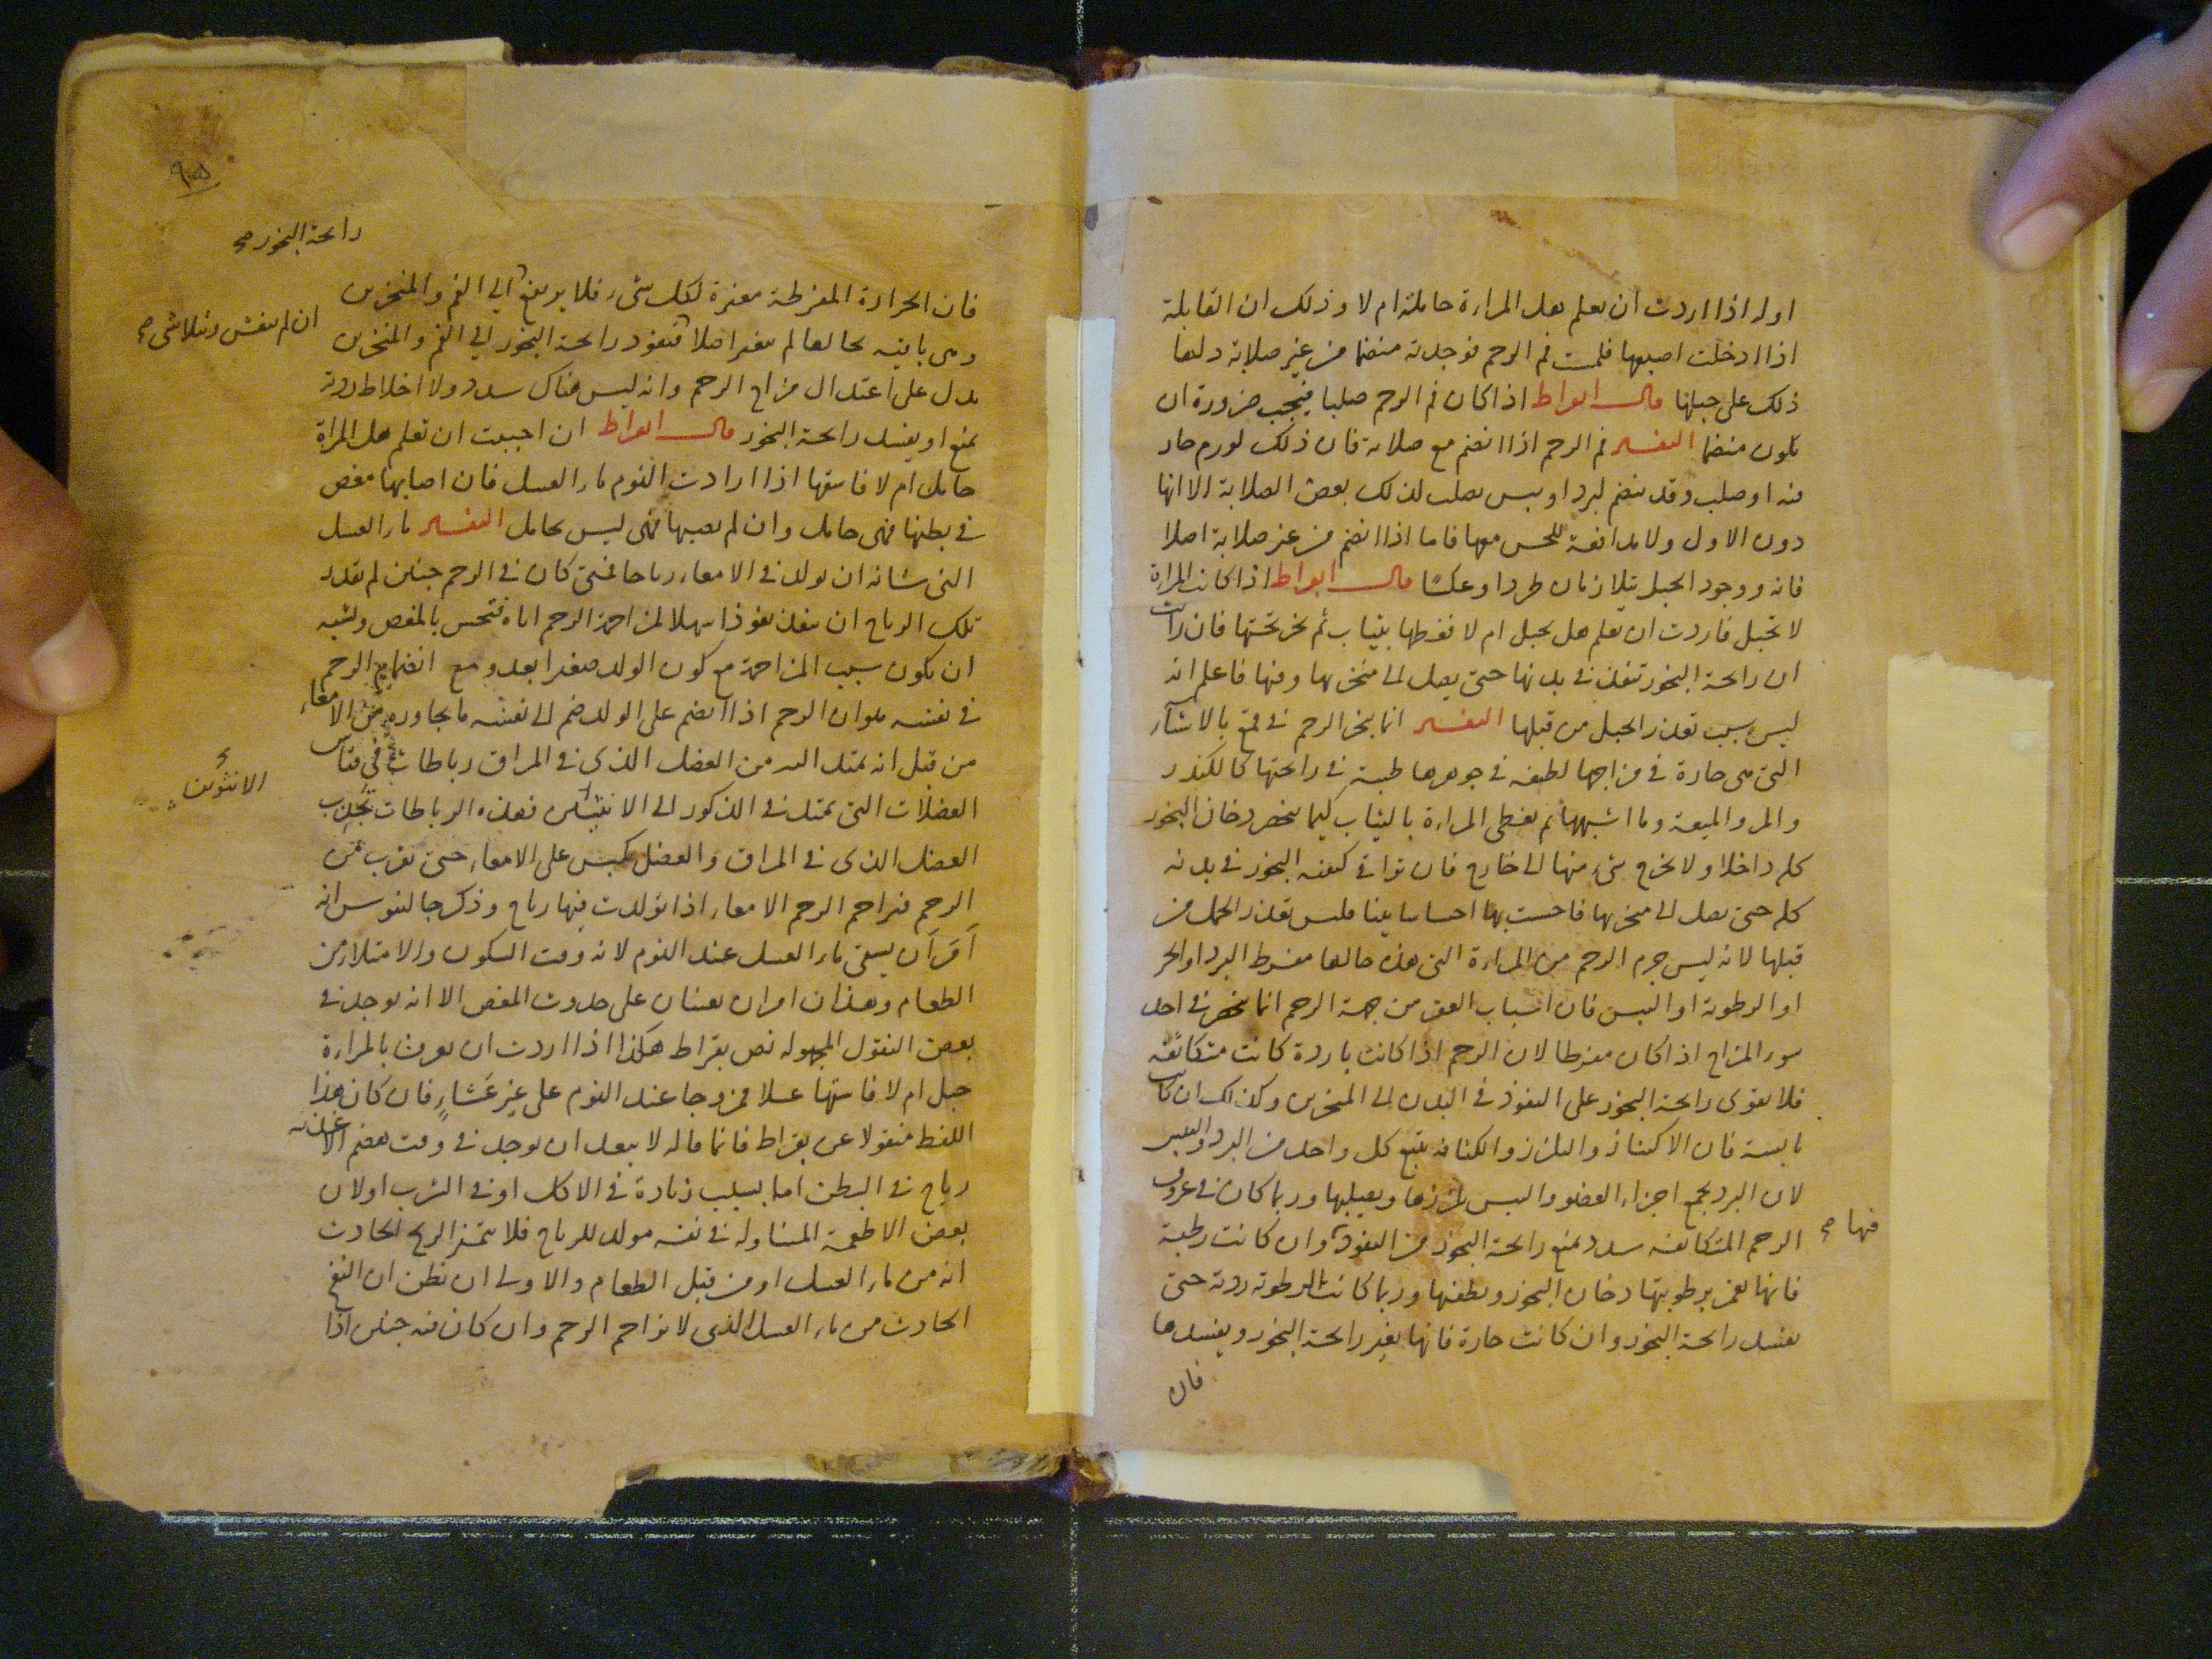 اوله اذا اردت ان تعلم هل المراءة حاملة ام لا وذلك ان القابلة
اذا ادخلت اصبعها فلمست فم الرحم فوجدته منضما من غير صلابة دلها
ذلك على حبلها قال ابقراط اذا كان فم الرحم صلبا فيجب ضرورة ان
يكون منضما التفسير فم الرحم اذا انضم مع صلابة فان ذلك لورم حار
فيه او صلب وقد ينضم لبرد او يبس يصلب لذلك بعض الصلابة الا انها
دون الاول ولا مدافعة للحس معها فاما اذا انضم من غير صلابة اصلا
فانه ووجود الحبل يتلازمان طردا وعكسًا قال ابقراط اذا كانت المراءة
لا تحبل فاردت ان تعلم هل تحبل ام لا فغطها بثياب ثم بخر تحتها فان رايت
ان رائحة البخور تنفذ في بدنها حتى يصل الى منخريها وفيها فاعلم انه
ليس سبب تعذر الحبل من قبلها التفسير انما يبخر الرحم في قمع بالاشياء
التي هي حارة في مزاجها لطيفة في جوهرها طيبة في رائحتها كالكندر
والمر والميعة وما اشبهها ثم تغطى المراءة بالثياب كيما ينحصر دخان البخور
كله داخلا ولا يخرج شيء منها الى خارج فان تراقى كيفية البخور في بدنه
كله حتى يصل الى منخريها فاحست بها احساسا بينا فليس تعذر الحمل من
قبلها لانه ليس جرم الرحم من المراءة التي هذه حالها مفرط البرد او الحر
او الرطوبة او اليبس فان اسباب العقر من جهة الرحم انما ينحصر في احد
سوء المزاج اذا كان مفرطا لان الرحم اذا كانت باردة كانت متكاثفة
فلا يقوى رائحة البخور على النفوذ في البدن الى المنخرين وكذلك ان كانت
يابسة فان الاكتناز والتلزز والكثافة يتبع كل واحد من البرد واليبس
لان البرد يجمع اجزاء العضو واليبس يلززها ويصلبها وربما كان في عروق
الرحم المتكاثفة سدد يمنع رائحة البخور من النفوذ وان كانت رطبة
فيها صح
فانها تغمر برطوبتها دخان البخور وتطفيها وربما كانت الرطوبة ردية حتى
تفسد رائحة البخور وان كانت حارة فانها يغير رائحة البخور ويفسدها
فان
رائحة البخور صح
فان الحرارة المفرطة مغيرة لكل شيء فلا يرتفع الى الفم والمنخرين
ان لم تنفش وتتلاشى صح
وهي باقية بحالها لم تتغير اصلا فنفوذ رائحة البخور الى الفم والمنخرين
يدل على اعتدال مزاج الرحم وانه ليس هناك سدد ولا اخلاط ردية
تمنع او يفسد رائحة البخور قال ابقراط ان احببت ان تعلم هل المراة
حامل ام لا فاسقها اذا ارادت النوم ماء العسل فان اصابها مغص
في بطنها فهي حامل وان لم يصبها فهي ليس بحامل التفسير ماء العسل
التي شانه ان يولد في الامعاء رياحا فمتى كان في الرحم جنين لم يقدر
تلك الرياح ان تنفذ نفوذا سهلا لمزاحمة الرحم اياه فتحس بالمغص ويشبه
ان يكون سبب المزاحمة مع كون الولد صغيرا بعد ومع انضمام الرحم
في نفسه هو ان الرحم اذا انضم على الولد ضم الى نفسه ما يجاوره من الامعاء
من قبل انه يمتد اليه من العضل الذي في المراق رباطات هي قياس
العضلات التي يمتد في الذكور الى الانثيين فهذه الرباطات تجذب
الانثوين
العضل الذي في المراق والعضل يكبس على الامعاء حتى يقرب من
الرحم فيزاحم الرحم الامعاء اذا تولدت فيها رياح وذكر جالينوس انه
اَمَرَ ان يسقى ماء العسل عند النوم لانه وقت السكون والامتلاء من
الطعام وهذان امران يعينان على حدوث المغص الا انه يوجد في
بعض النقول المجهوله نص بقراط هكذا اذا اردت ان تعرف بالمراءة
حبل ام لا فاسقها عسلا ممزوجا عند النوم على غير عَشَاءٍ فان كان هذا
اللفظ منقولا عن بقراط فانما قاله لا يبعد ان يوجد في وقت هضم الاغذية
رياح في البطن اما بسبب زيادة في الاكل او في الشرب او لان
بعض الاطعمة المتناوله في نفسه مولد للرياح فلا يتميز الريح الحادث
انه من ماء العسل او من قبل الطعام والاولى ان تظن ان النفخ
الحادث من ماء العسل الذي لا يزاحم الرحم وان كان فيه جنين اذا